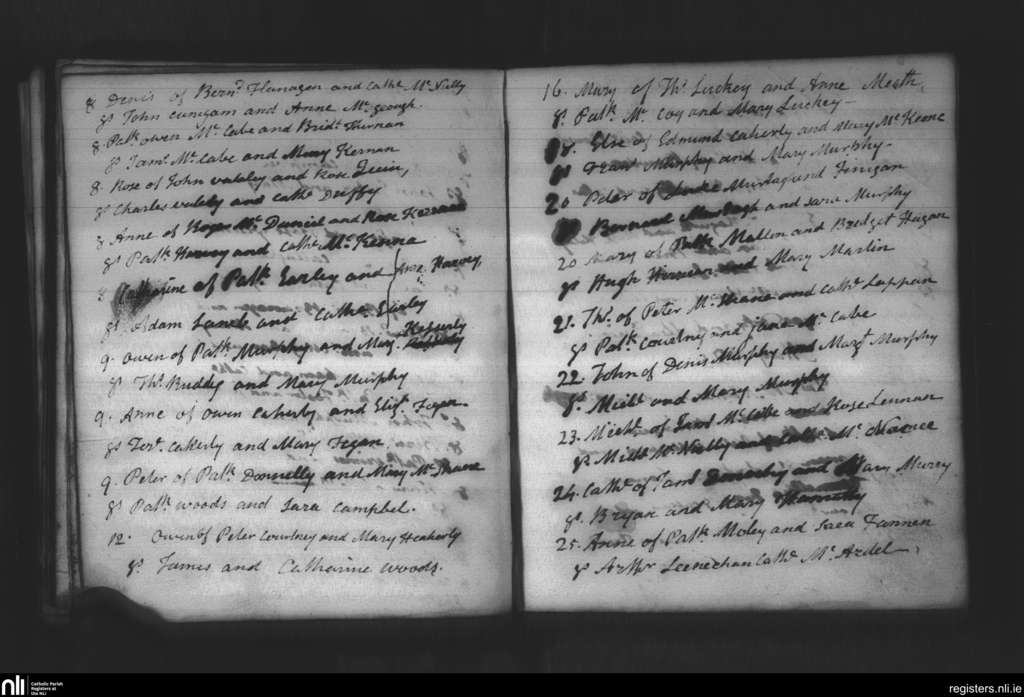 8 Denis of Bernd Flanagan and Cathe Mc Nally
gs John Cunigam and Anne Mc geough.
8 Patk owen Mc Cabe and Bridt Thurnan
gs Jams Mc Cabe and Mary Kernan
8 Rose of John and Rose Quin,
gs Charles and Cathe Duffy
8 Anne of Mc Daniel and Rose
gs Patk Harvey and Cathe Mc Kenna
8 Catharine of Patk Earley and Anne Harvey,
gs Adam Lamb and Cathe Earley
9. Owen of Patk Murphy and Mary
gs Ths Buddy and Mary Murphy
9. Anne of Owen Caherly and Elizt Fegan
gs Caherly and Mary Fegan
9. Peter of Patk Donnelly and Mary Mc Shane
gs Patk woods and Sara Campbel.
12. Owen of Peter Courtney and Mary Heaherly
gs James and Catharine Woods.
16. Mary of Ths Luckey and Anne Meath,
gs. Patk Mc Coy and Mary Luckey
18. Else of Edmund Caherly and Mary Mc Keone
gs Murphy and Mary Murphy
20 Peter of Luke Murtagh and Finigan
Bernard Murtagh and Jane Murphy
20 Mary of Patk Mallon and Bredget Hagan
gs Hugh and Mary Martin
21. Ths. of Peter Mc Shane and Cathe Lappan
gs Patk Courtney and Jane Mc Cabe
22. John of Denis Murphy and Margt Murphy
gs Michl and Mary Murphy
23. Michl of Jams Mc Cabe and Rose Lennan
gs Michl Mc Nally and Cathe Mc
24. Cathe of Jams and Mary Murey
gs. Bryan and Mary
25. Anne of Patk Moley and Sara Fannen
gs Arthr Leenechan Cathe Mc Ardel
nli
Catholic Parish
Registers at
the NLI
registers.nli.ie